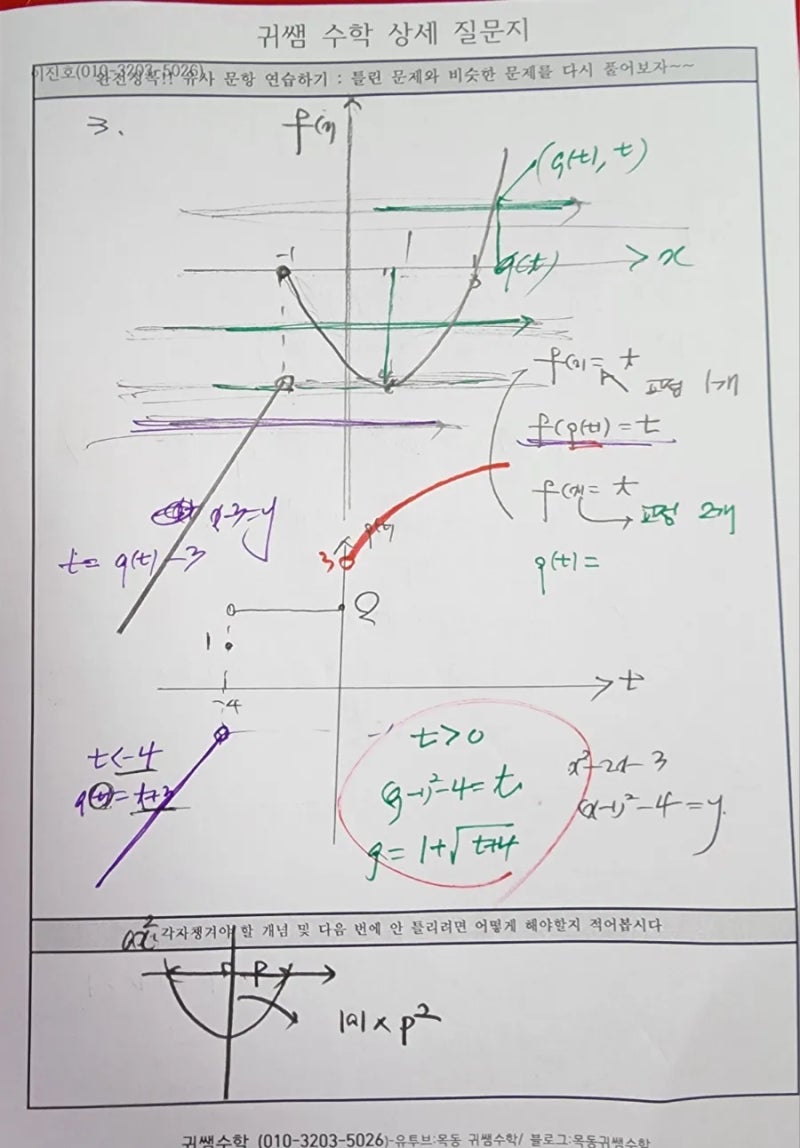 귀쌤 수학 상세 질문지
이진호(010-3203-5026)
완전정복!! 유사 문항 연습하기 : 틀린 문제와 비슷한 문제를 다시 풀어보자~~
3.
f(x)
(g(t), t)
-1
1
3
g(t)
x
-4
f(x) = t
교점 1개
f(g(t)) = t
f(x) = t
교점 2개
g(t) =
x-3=y
t = g(t) - 3
g(t)
3
2
1
-4
t
-1
t<-4
g(t)= t+3
t>0
(g-1)²-4=t
g = 1+√t+4
x²-2x-3
(x-1)²-4=y
각자챙겨야 할 개념 및 다음 번에 안 틀리려면 어떻게 해야할지 적어봅시다
ax²
P
|a| x p²
귀쌤수학 (010-3203-5026)-유투브:목동 귀쌤수학/ 블로그:목동귀쌤수학